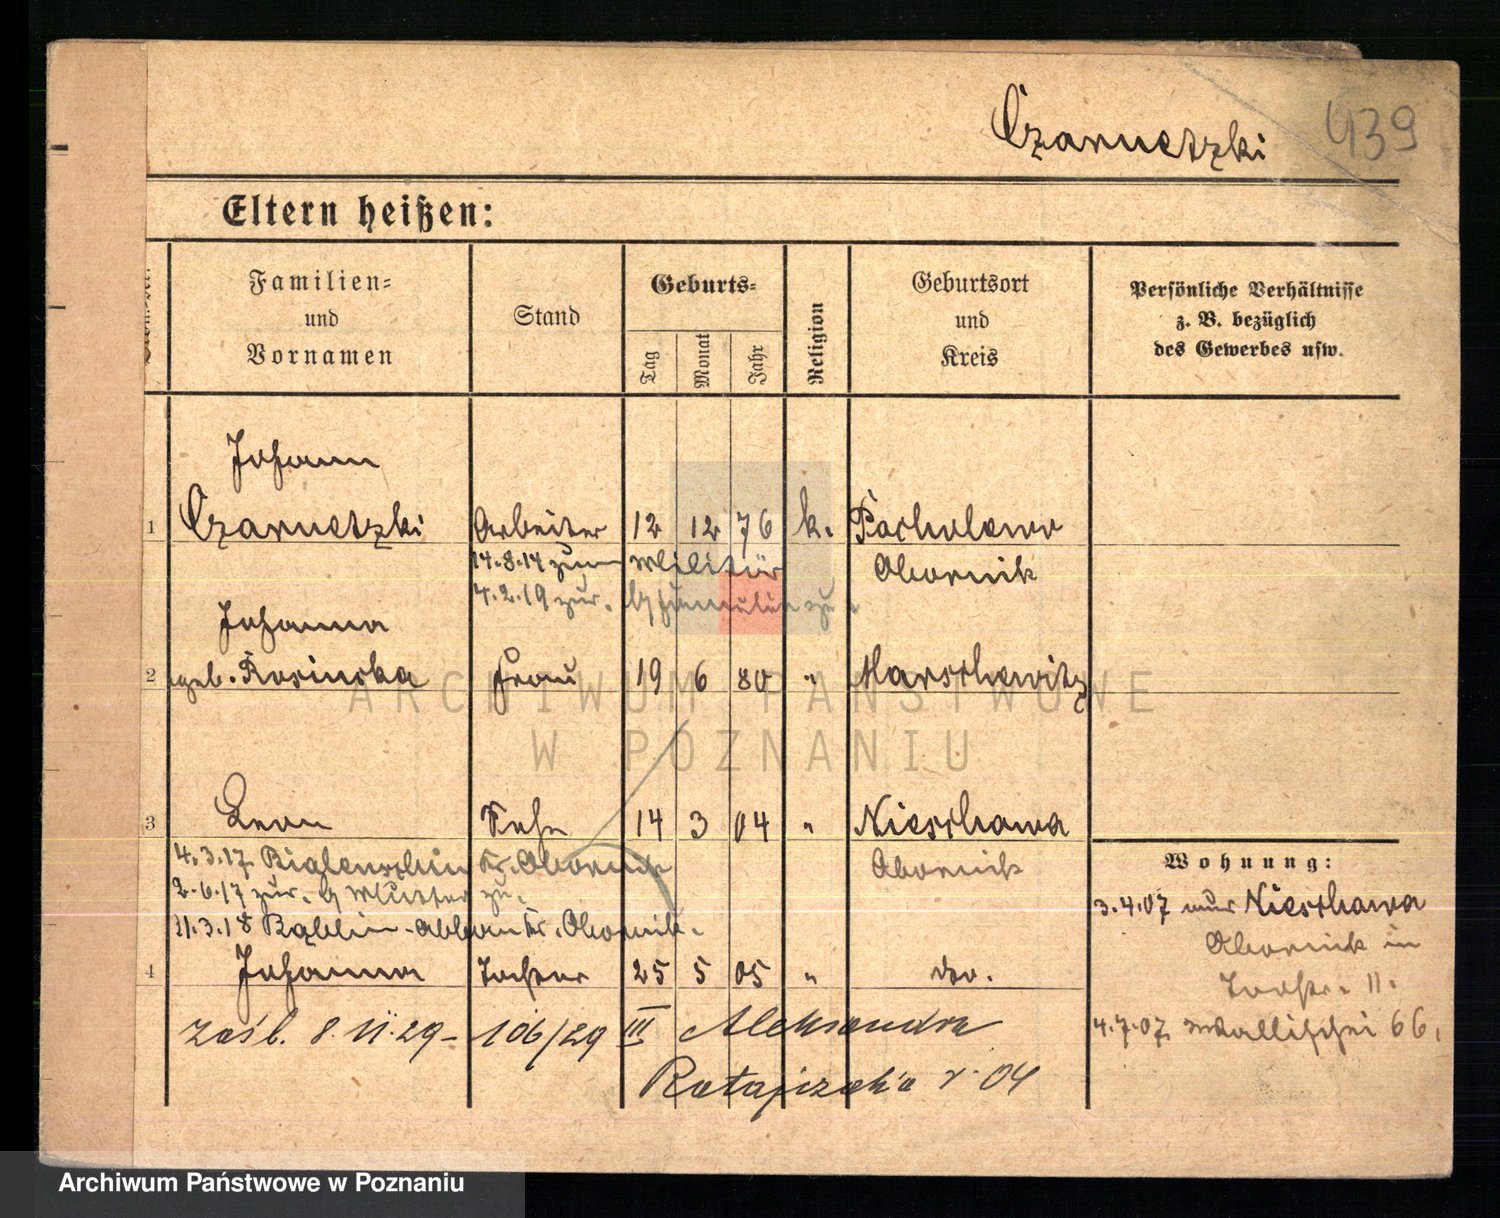 Czarnetzki
439
Eltern heißen:
Familien=
und
Vornamen
Stand
Geburts=
Tag
Monat
Jahr
Religion
Geburtsort
und
Kreis
Persönliche Verhältnisse
z. B. bezüglich
des Gewerbes usw.
Johann
1 Czarnetzki Arbeiter 12 12 76 k. Pacholewo
14.8.14 zum Militär Obornik
4.2.19 zur.
Johanna
2 geb. Rosinska Frau 19 6 80 " Marschewitz
ARCHIWUM PAŃSTWOWE
W POZNANIU
3 Leon Sohn 14 3 04 " Nieschawa
4.3.17 Kr. Obornik Obornik
2.6.17 zur. Mutter zu.
21.3.18 Kr. Obornik.
4 Johanna Tochter 25 5 05 " do.
Zaśl. 8.II.29 - 106/29 III Aleksandra
Ratajczak'a r. 04
Wohnung:
3.4.07 von Nieschawa
Obornik in
11.
4.7.07 Wallischei 66.
Archiwum Państwowe w Poznaniu